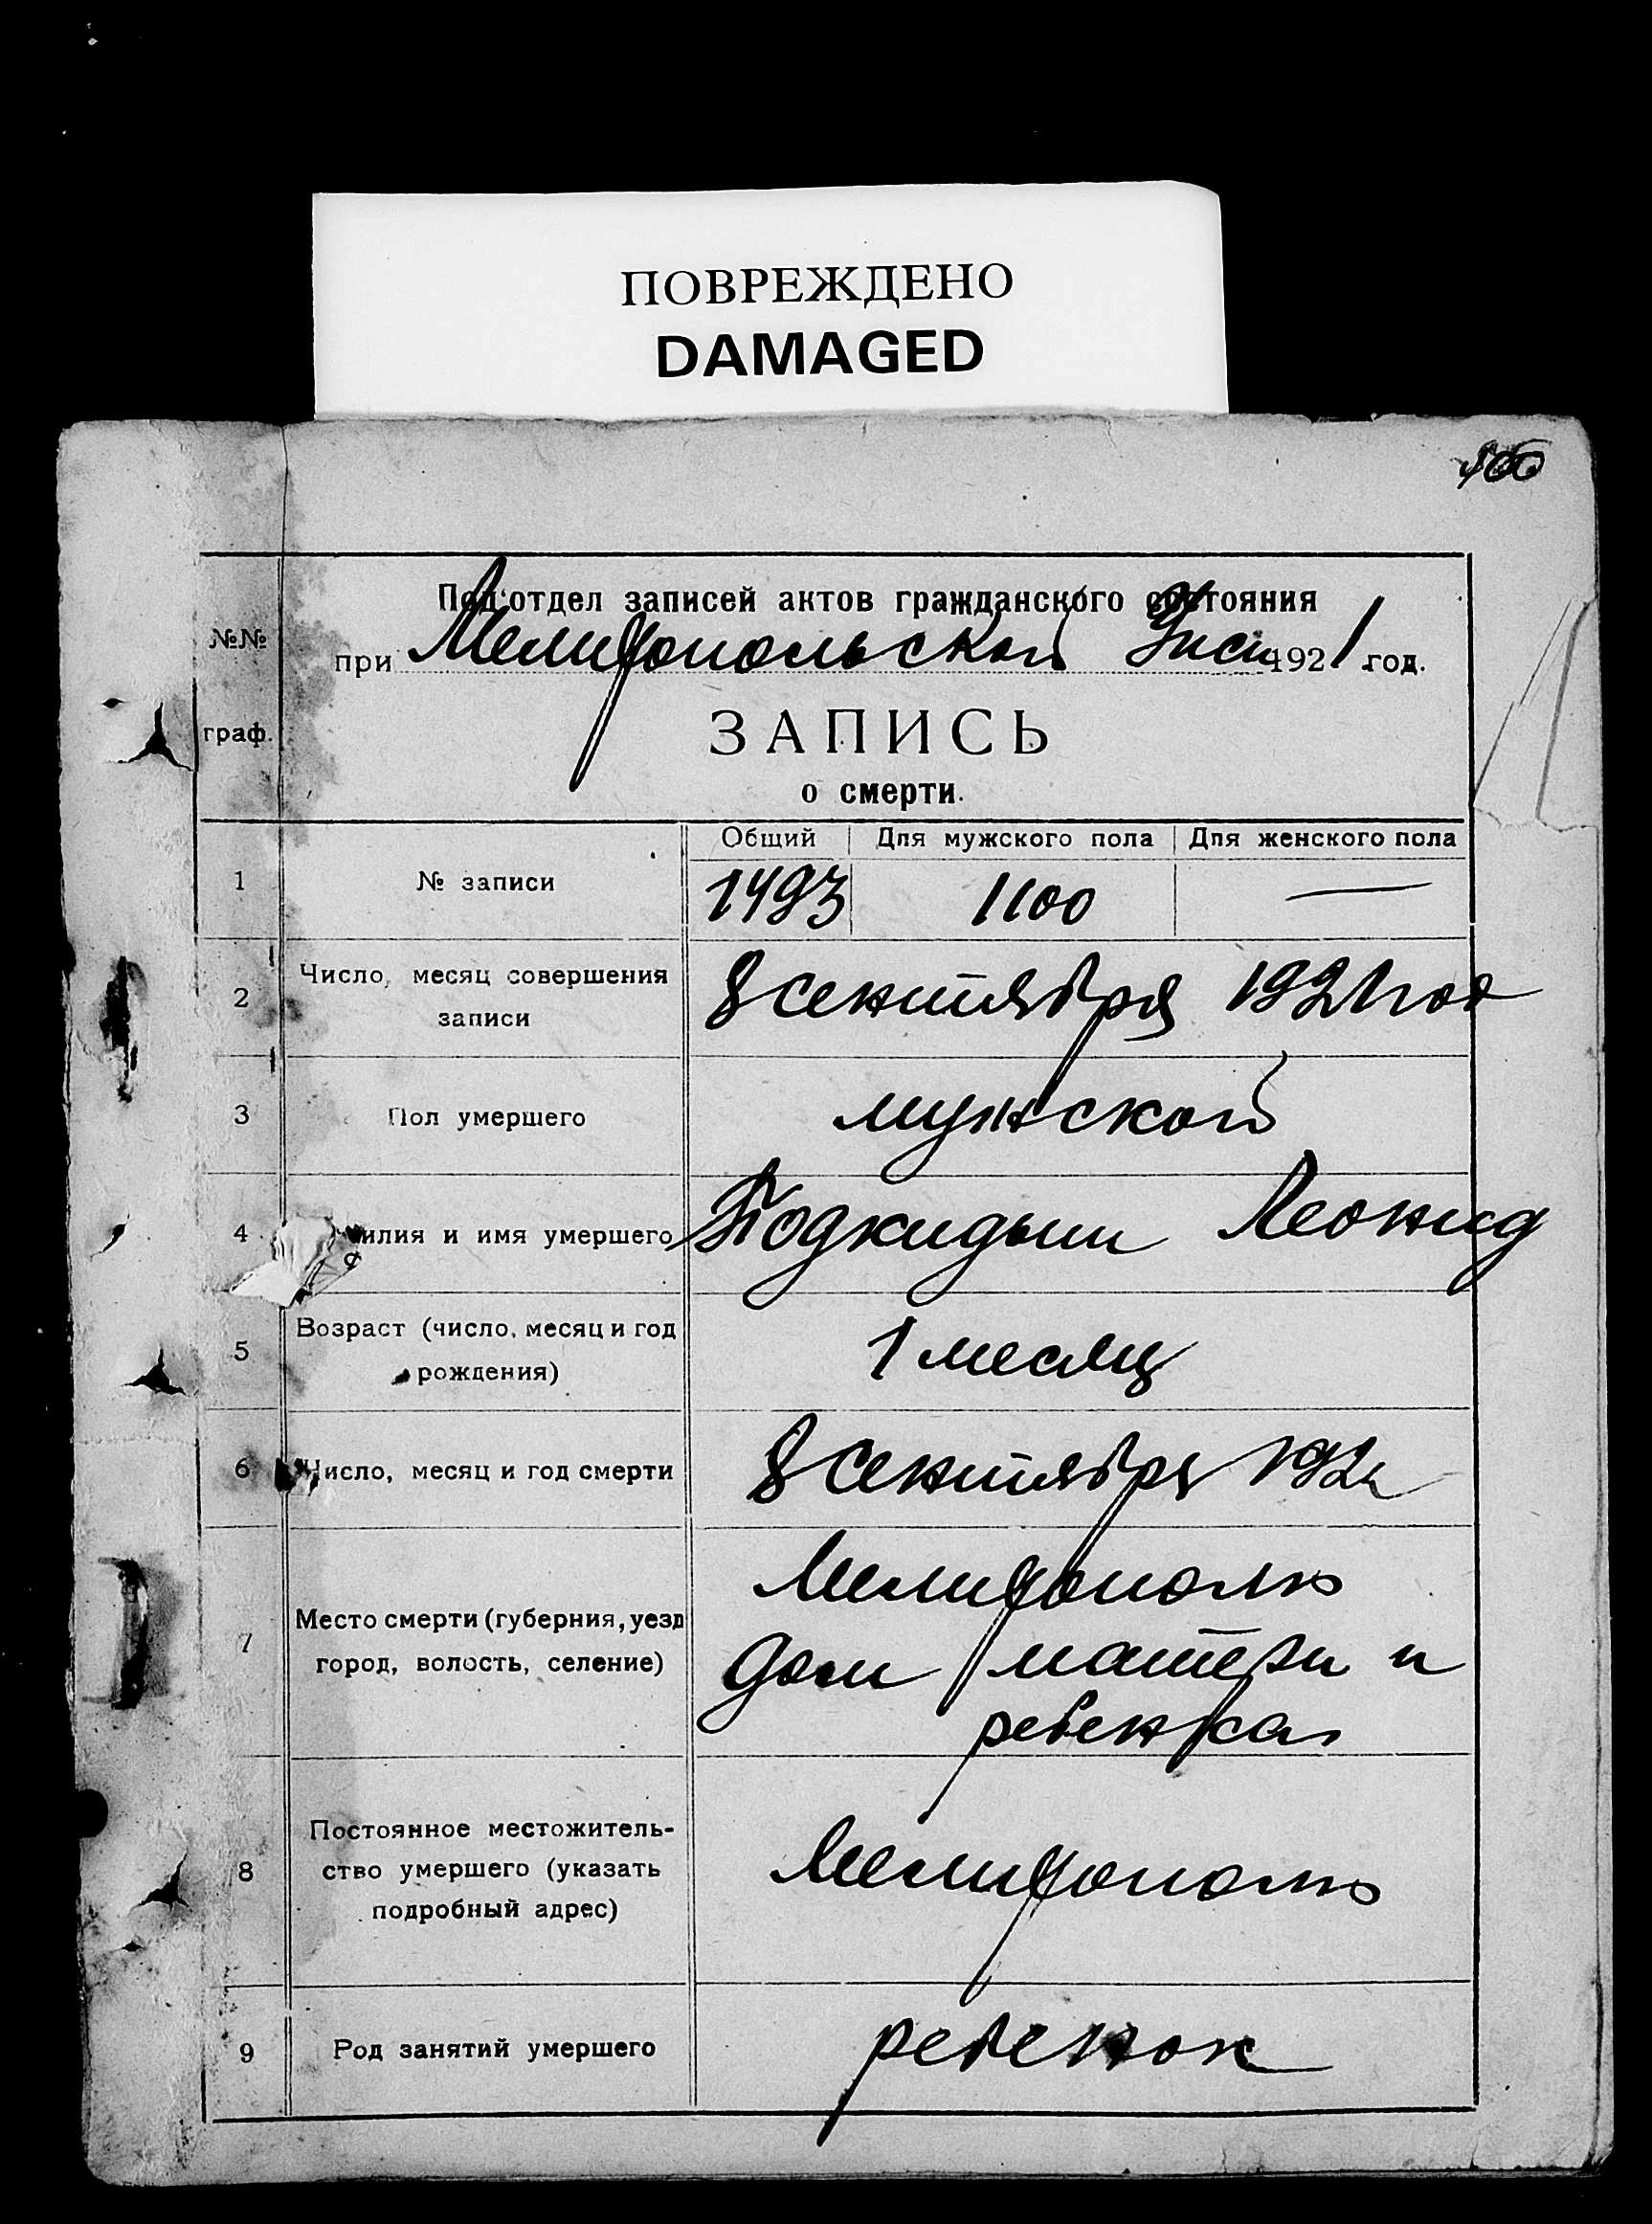 ПОВРЕЖДЕНО
DAMAGED
Под'отдел записей актов гражданского состояния
№№
при Мелитопольской 1921 год.
граф.
ЗАПИСЬ
о смерти.
Общий Для мужского пола Для женского пола
1 № записи 1493 1100 —
2 Число, месяц совершения
записи
8 сентября 1921 год
3 Пол умершего мужской
4 илия и имя умершего Подкидыш Леонид
5 Возраст (число, месяц и год
рождения)
1 месяц
6 Число, месяц и год смерти 8 сентября 1921
7 Место смерти (губерния, уезд
город, волость, селение)
Мелитополь
дом матери и
ребенка
8 Постоянное местожитель-
ство умершего (указать
подробный адрес)
Мелитополь
9 Род занятий умершего ребенок